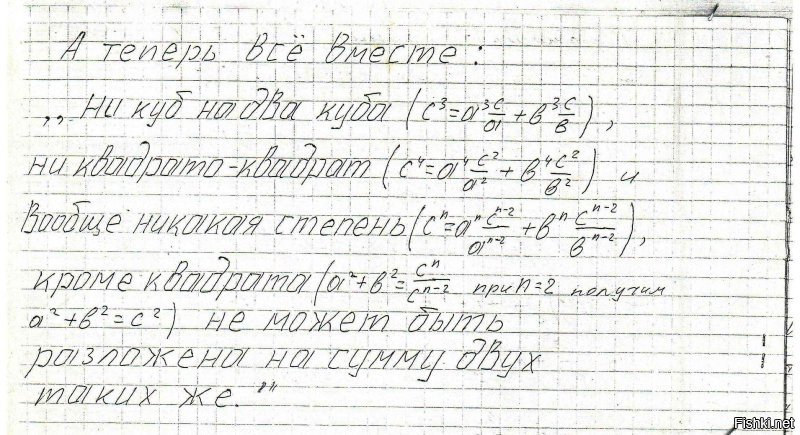 А теперь всё вместе:
„Ни куб на два куба (c³=a³c/a+в³c/в),
ни квадрато-квадрат (c⁴=a⁴c²/a²+в⁴c²/в²) и
вообще никакая степень (cⁿ=aⁿcⁿ⁻²/aⁿ⁻²+вⁿcⁿ⁻²/вⁿ⁻²),
кроме квадрата (a²+в²=cⁿ/cⁿ⁻² при n=2 получим
a²+в²=c²) не может быть
разложена на сумму двух
таких же.“
Fishki.net